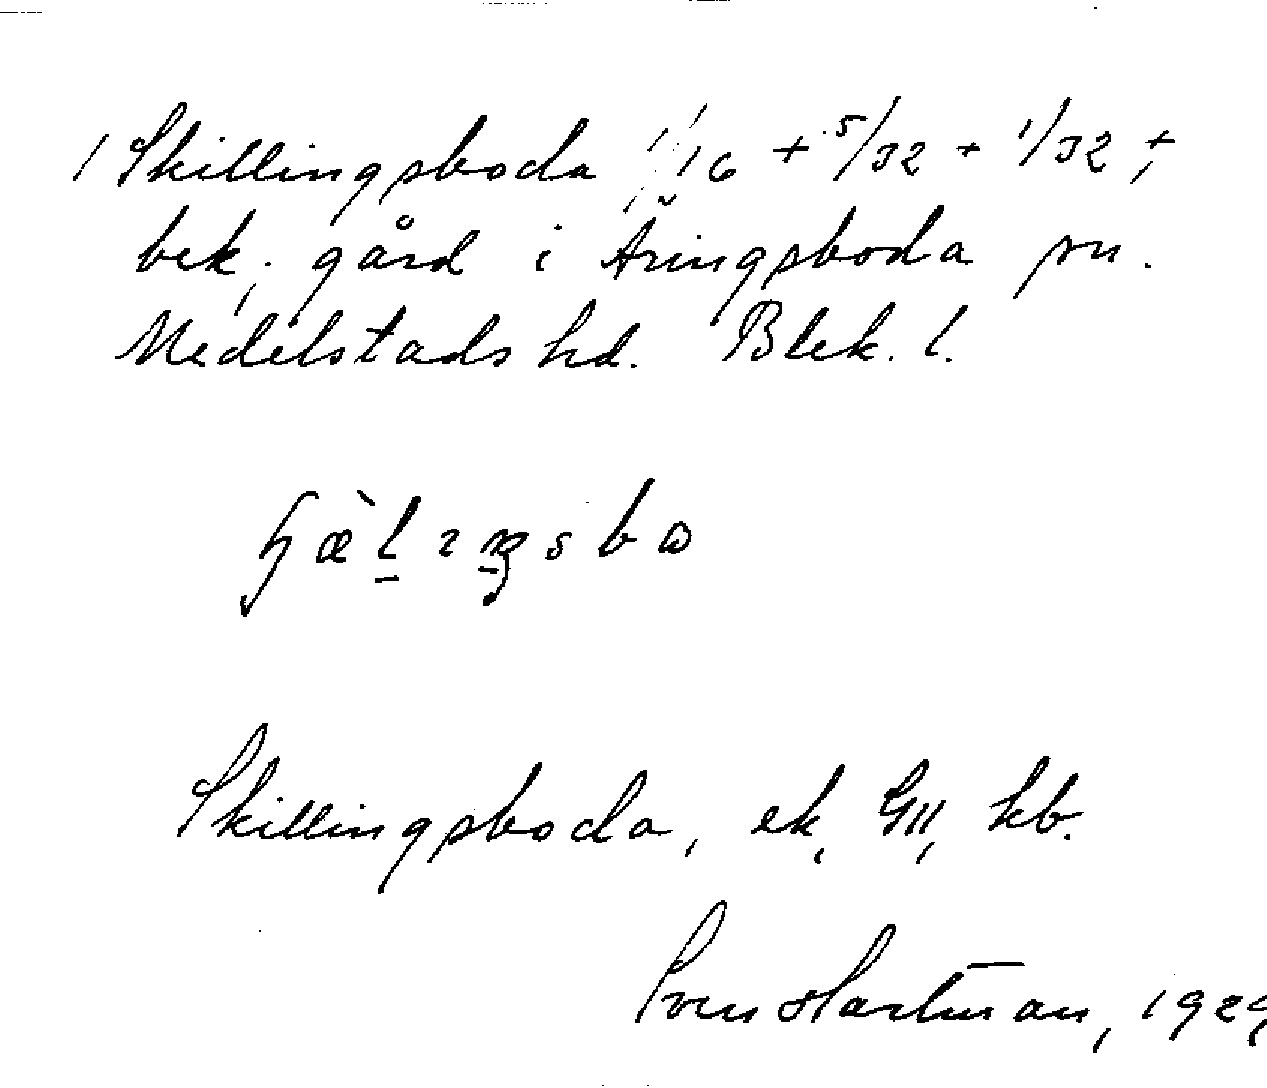 1 Skillingsboda 1/16 + 5/32 + 1/32 +,
bek, gård i Äringsboda sn.
Medelstads hd. Blek. l.
ɧæ̀lıŋsbo
Skillingsboda, ek, GII, kb.
Sven Hartman, 1929